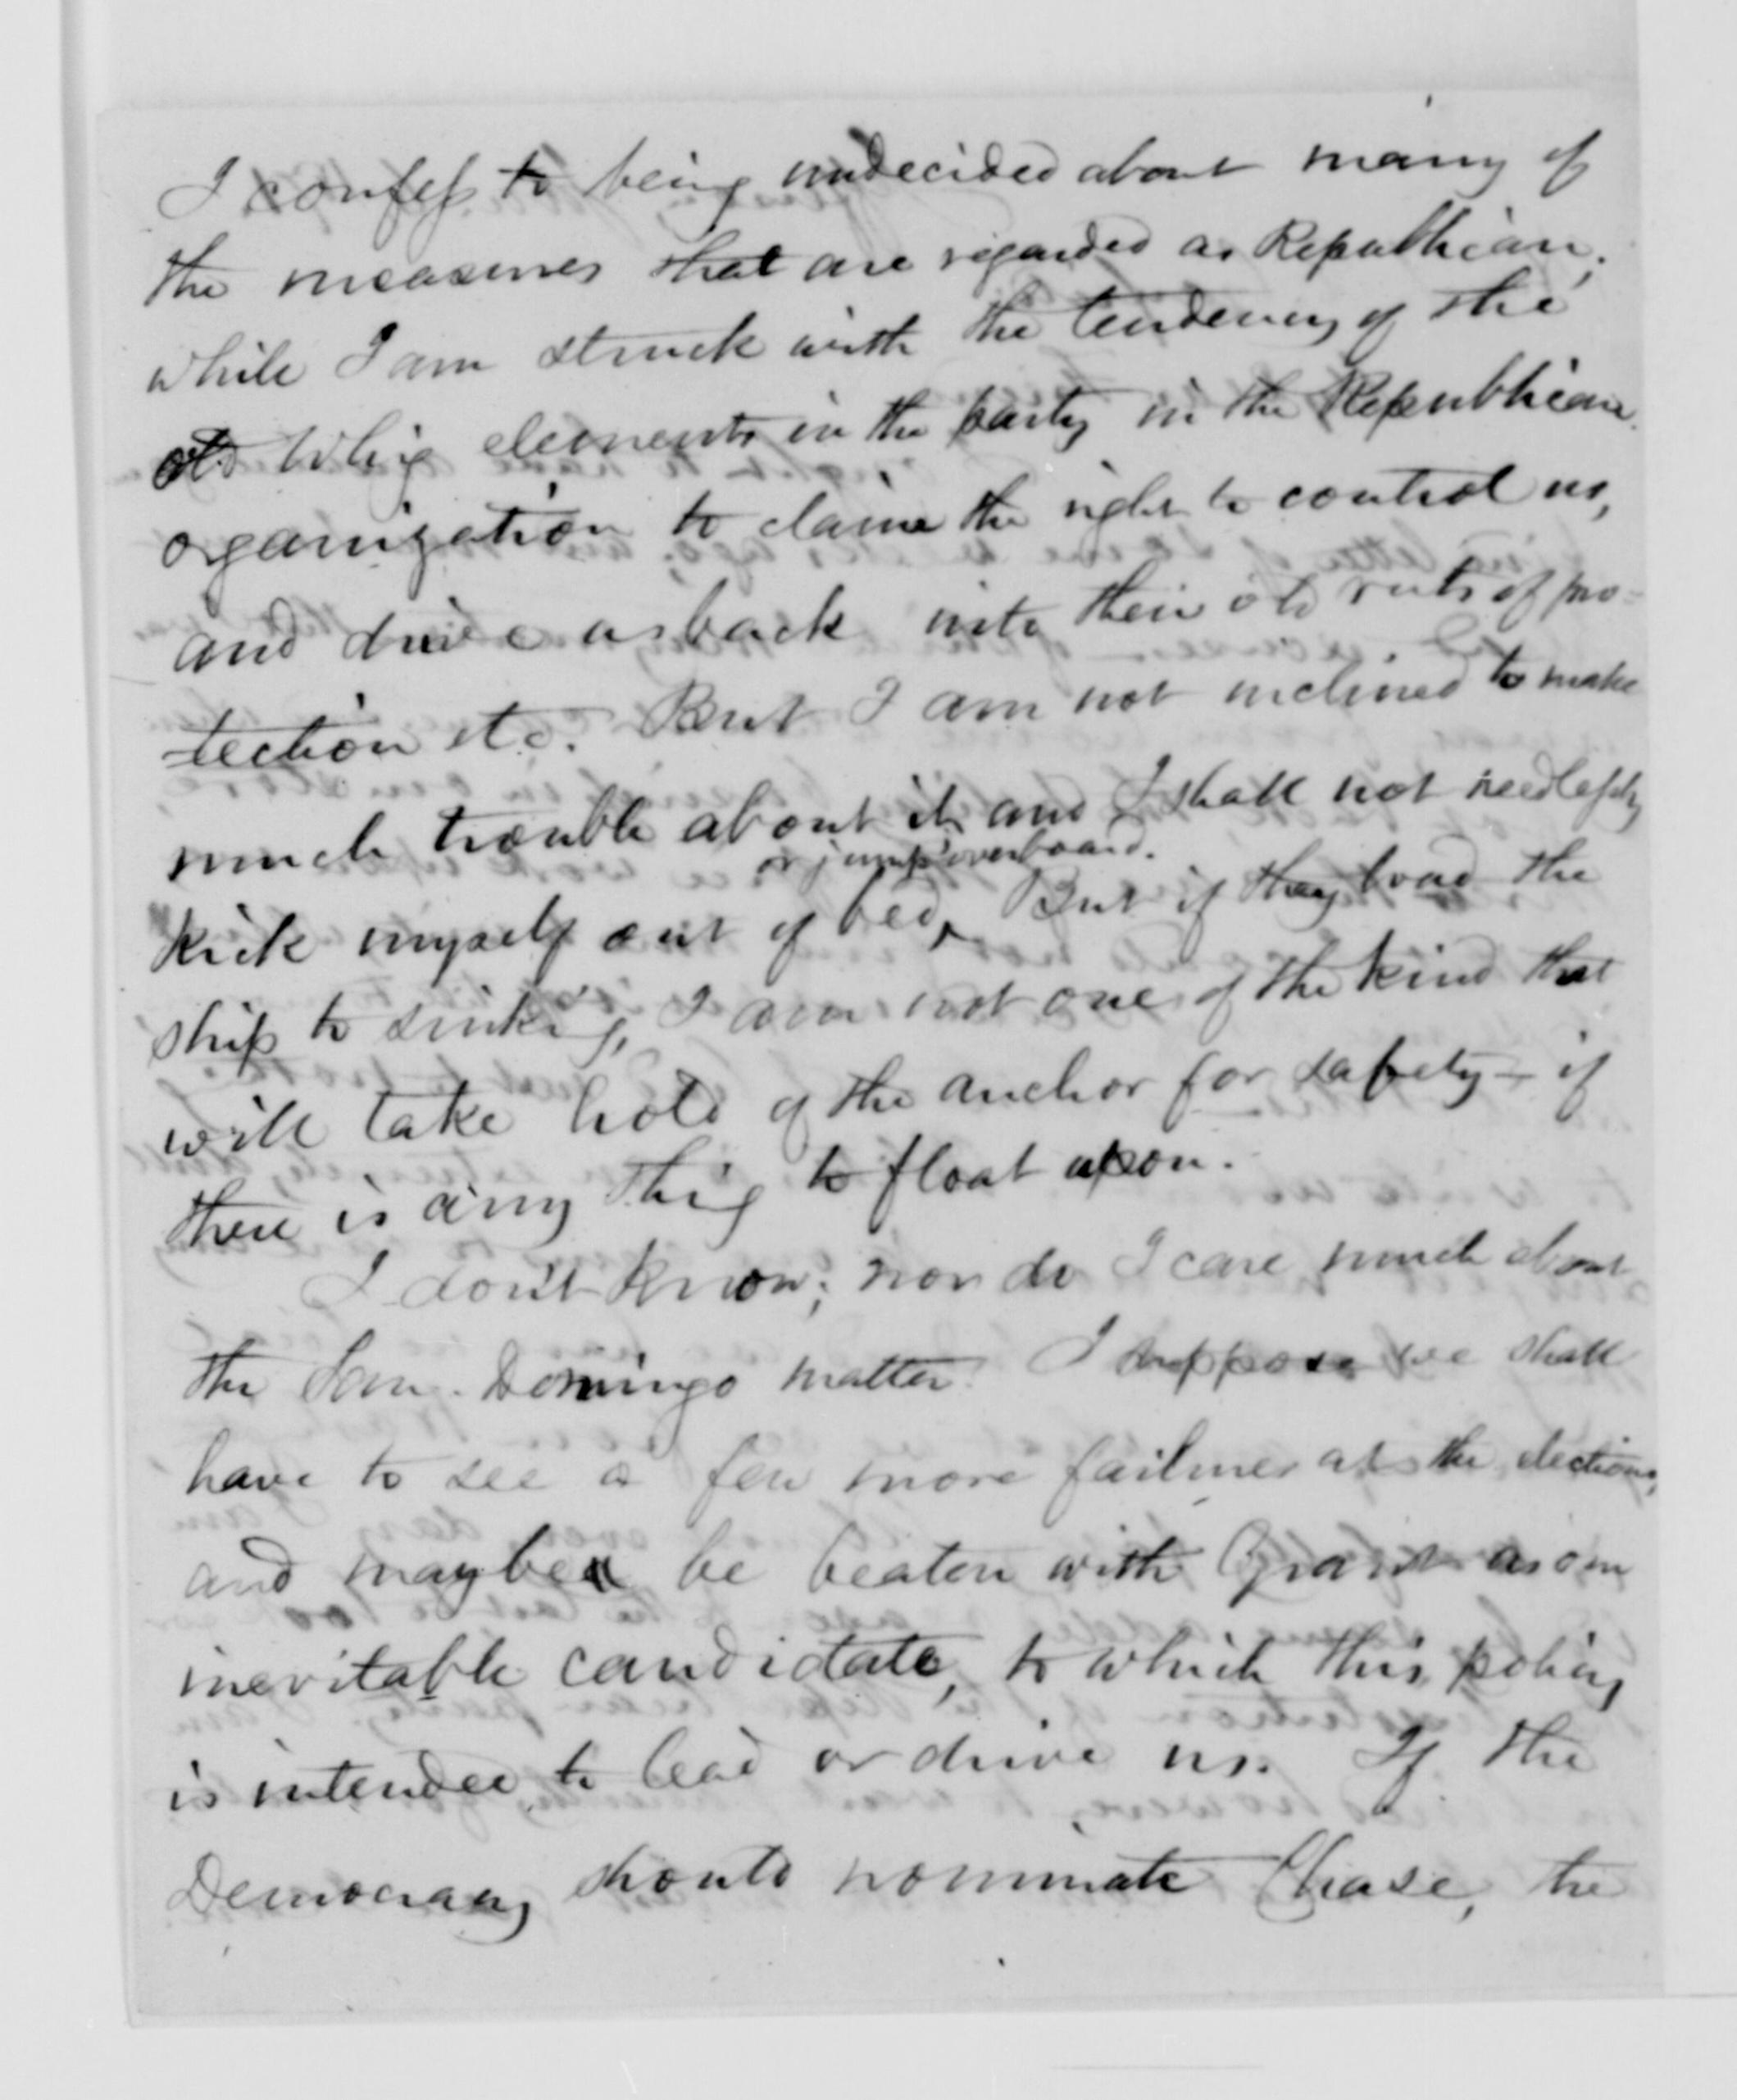 I confess to being undecided about many of
the measures that are regarded as Republican,
while I am struck with the tendency of the
old Whig elements in the party in the Republican
organization to claim the right to control us,
and drive us back into their old ruts of pro-
tection etc. But I am not inclined to make
much trouble about it and I shall not needlessly
or jump overboard.
kick myself out of bed, But if they load the
ship to sinking, I am not one of the kind that
will take hold of the anchor for safety - if
there is any thig to float upon.
I don't know; nor do I care much about
the San. Domingo matter. I suppose we shall
have to see a few more failures at the elections,
and maybe be beaten with Grant as our
inevitable candidate, to which this policy
is intended to lead or drive us. If the
Democracy should nominate Chase, the